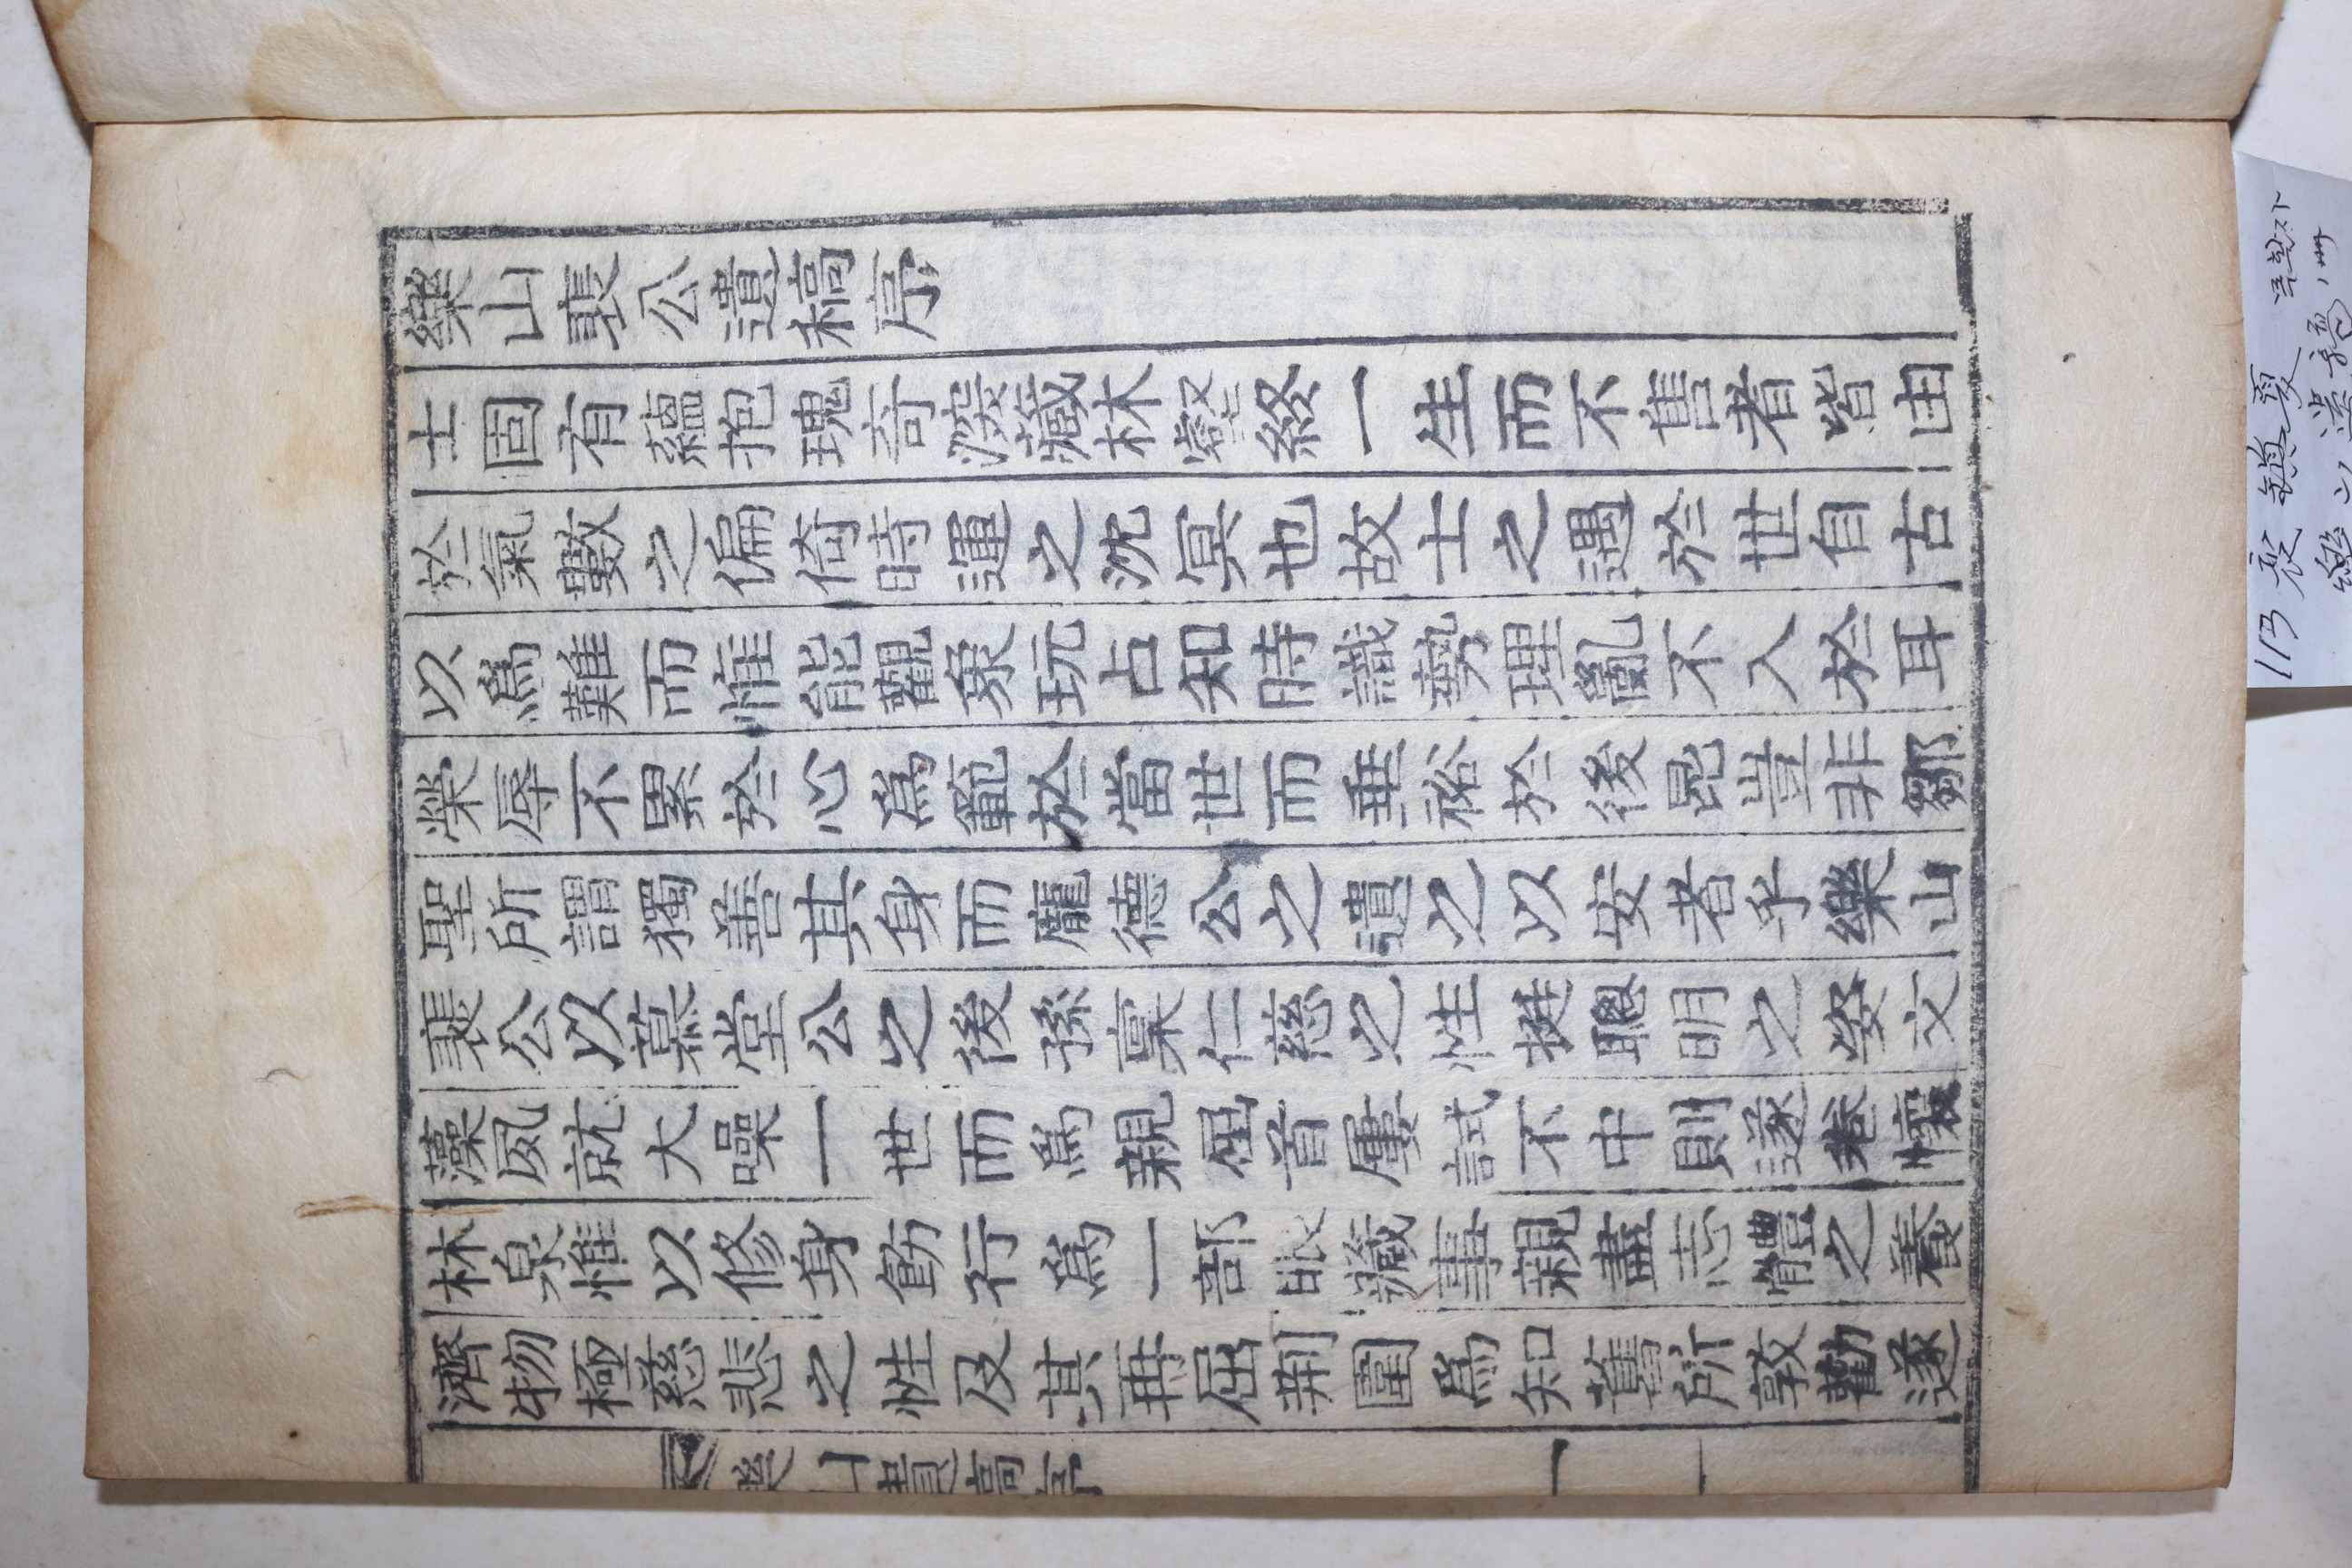 樂山裵公遺稿序
士固有蘊抱瑰奇深藏林壑終一生而不售者皆由
於氣數之偏倚時運之沈冥也故士之遇於世自古
以爲難而惟能觀象玩占知時識勢理亂不入於耳
榮辱不累於心爲範於當世而垂裕於後昆豈非鄒
聖所謂獨善其身而龐德公之遺之以安者乎樂山
裵公以慕堂公之後孫稟仁慈之性挺聰明之姿文
藻夙就大噪一世而爲親屈首屢試不中則遂卷懷
林泉惟以修身飭行爲一部眼藏事親盡志體之養
濟物極慈悲之性及其再屈荆圍爲知舊所敦勸遂
樂山遺稿序
一
113 裵鎮夏 목활자
樂山遺稿 1冊